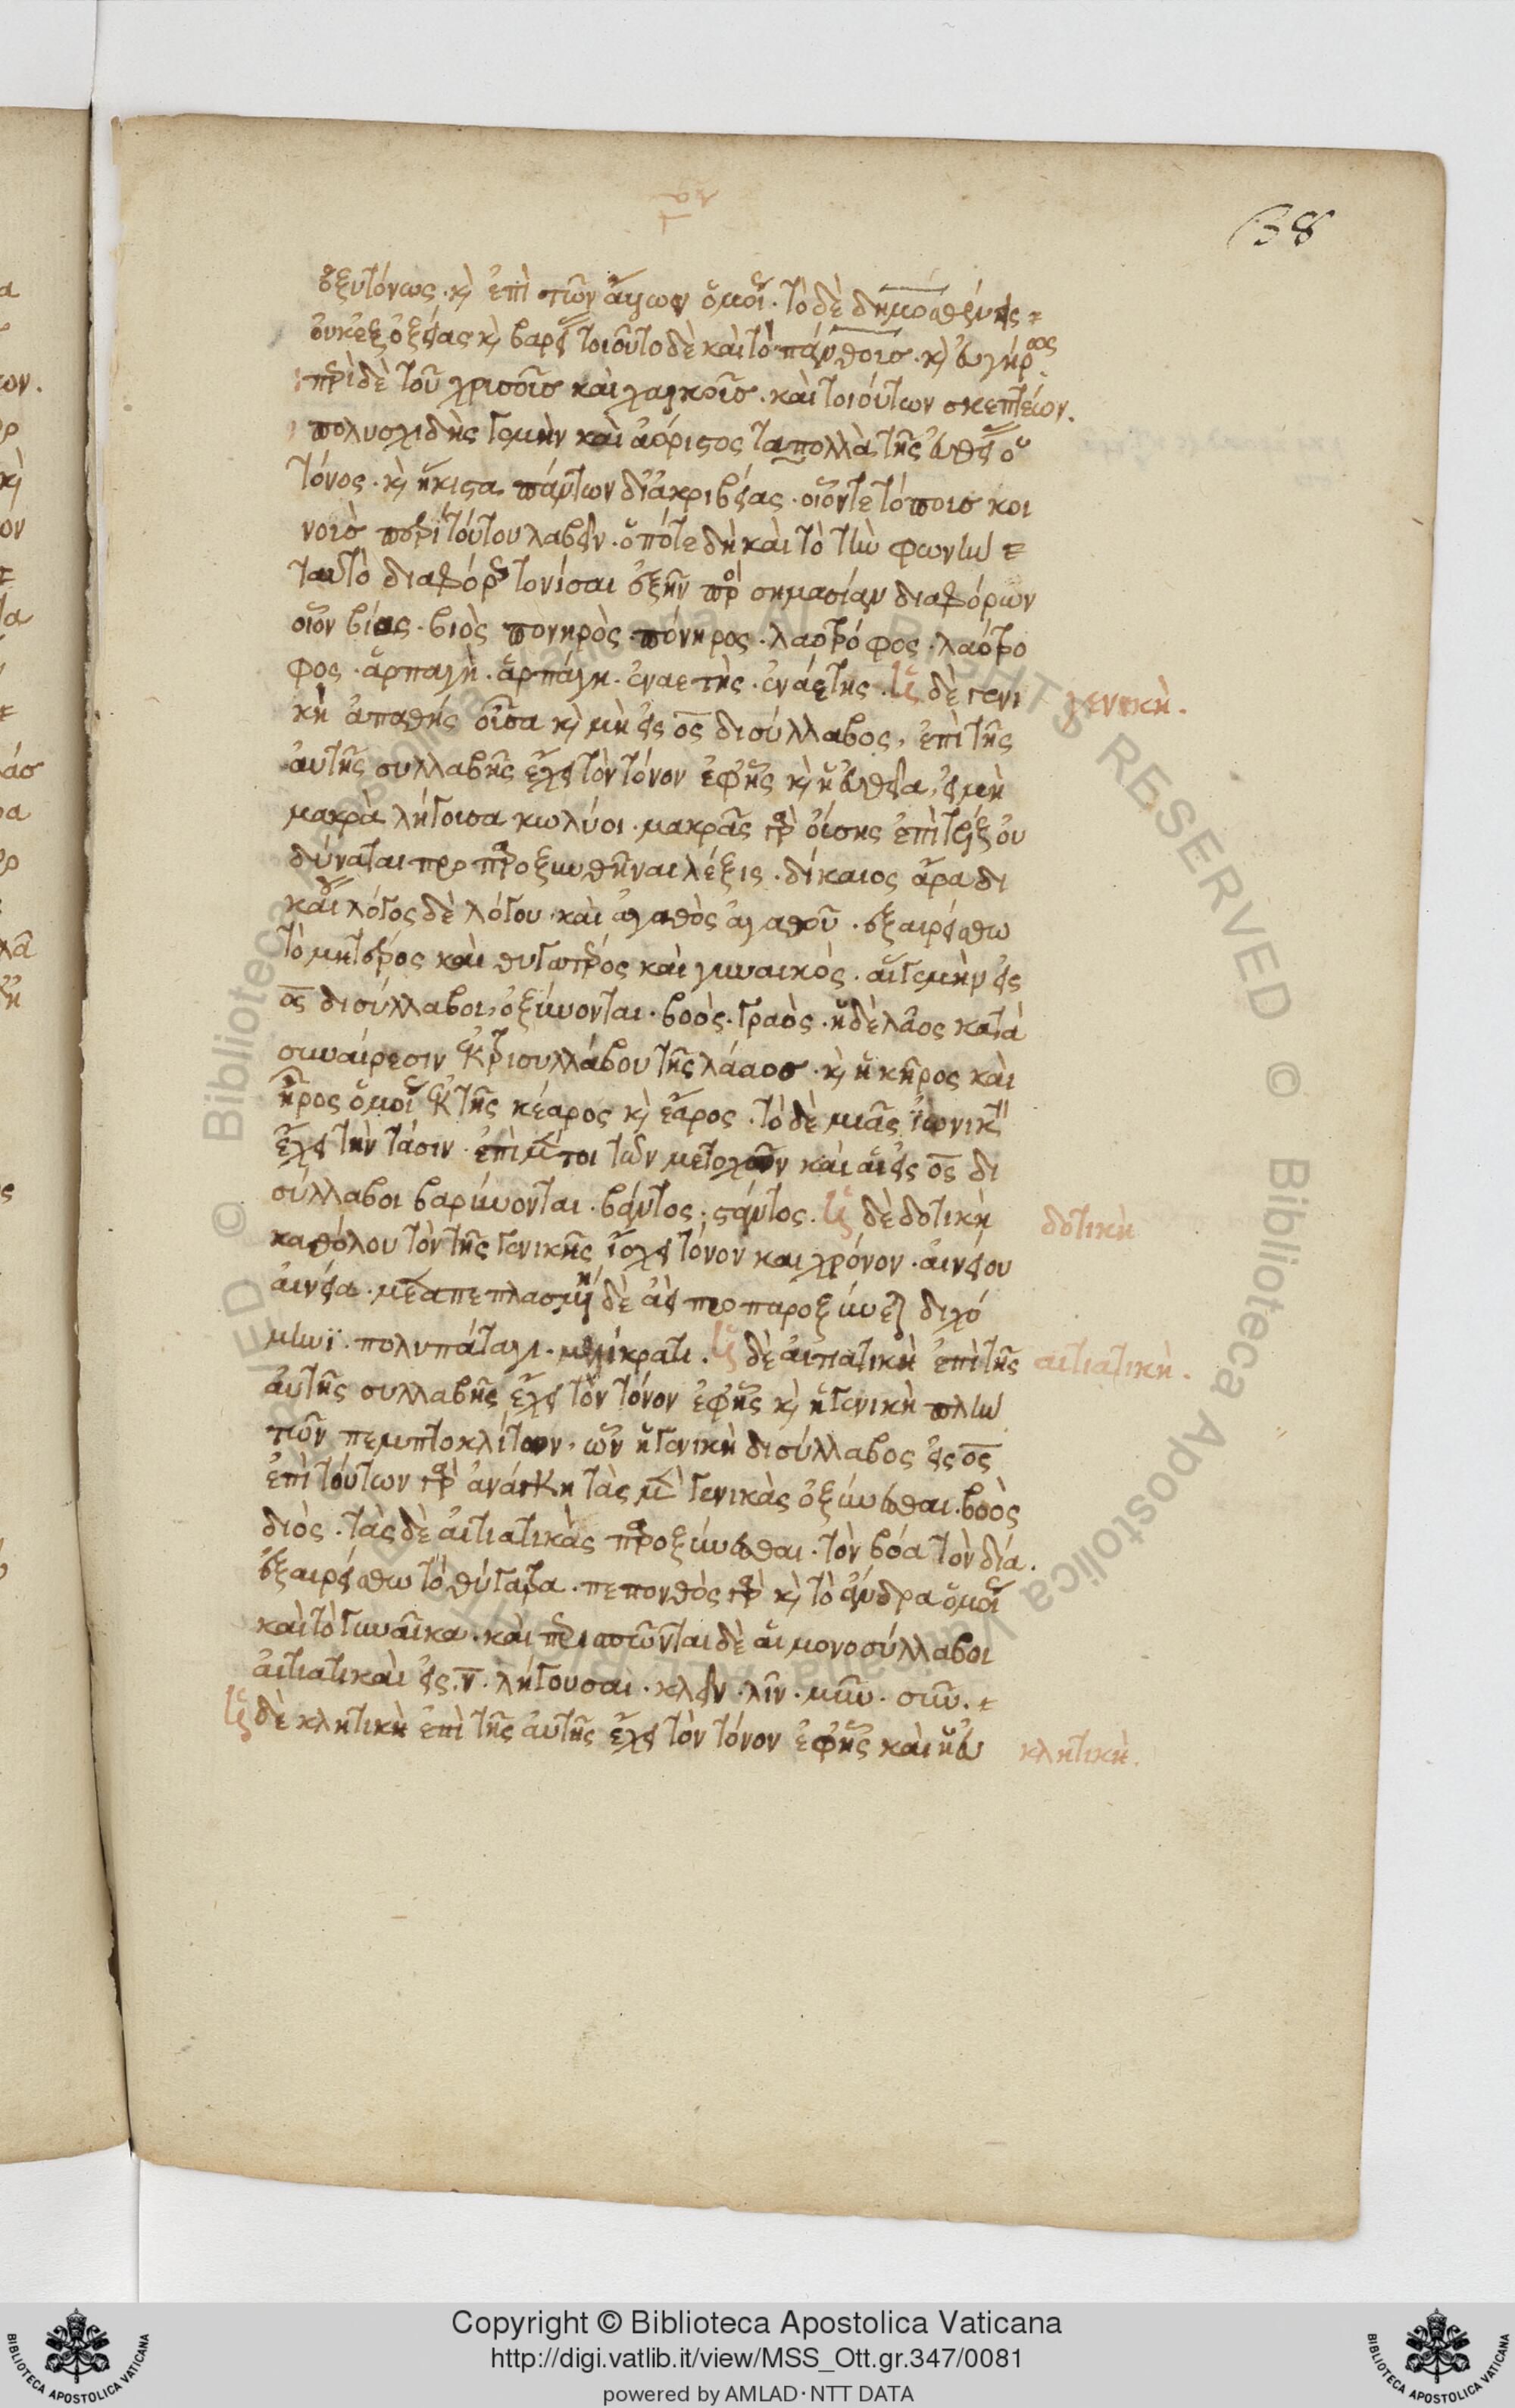 138
ὀξυτόνως. κ ἐπὶ τῶν ἄλλων ὁμοί. τὸ δὲ δημοσθένης
οὐκ ἐξ ὀξείας κ βαρεί τοιοῦτο δὲ καὶ τὸ πάνθοισ. κ εὐγήρ
περὶ δὲ τοῦ χρισοῖσ καὶ χαλκοῖσ. καὶ τοιούτων σκεπτέων.
πολυσχιδὴς γεμὴν καὶ ἀόριστος τὰ πολλὰ τῆς εὐθεί ὁ
τόνος. κ ἥκιστα πάντων δι' ἀκριβείας. οἷόντε τόποισ κοι
νοισ περὶ τούτου λαβεῖν. ὁπότε δὴ καὶ τὸ τὴν φωνὴν
ταυτὸ διαφόρ τονίσαι ἐξῆν πρ σημασίαν διαφόρων
οἷον βίος. βιὸς πονηρὸς. πόνηρος. λαοτρόφος. λαότρο
φος. ἁρπαγὴ. ἁρπάγη. ἐναετὴς. ἐναέτης. ἡ δὲ γενι
κὴ ἀπαθής οὖσα κ μὴ εἰς ος δισύλλαβος, ἐπὶ τῆς
αὐτῆς συλλαβῆς ἔχει τὸν τόνον ἐφῆς κ ἡ εὐθεῖα, εἰ μὴ
μακρὰ λήγοισα κωλύοι. μακρᾶς γὰρ οὔσης ἐπὶ τέλει οὐ
δύναται προπαροξυνθῆναι λέξις. δίκαιος ἄρα δι
καί λόγος δὲ λόγου. καὶ ἀγαθὸς ἀγαθοῦ. ἐξαιρείσθω
τὸ μητέρος καὶ θυγατρός καὶ γυναικὸς. αἵ γε μὴν εἰς
ος δισύλλαβοι, ὀξύνονται. βοὸς. γραὸς. ἡ δὲ λᾶος κατὰ
συναίρεσιν ἐκ τρισυλλάβου τῆς λάαοσ. κ ἡ κῆρος καὶ
ἦρος ὁμοί ἐκ τῆς κέαρος κ ἔαρος. τὸ δὲ μιᾶς ἰωνικ
ἔχει τὴν τάσιν. ἐπὶ μέντοι τῶν μετοχῶν καὶ αἱ εἰς ος δι
σύλλαβοι βαρύνονται. βάντος. στάντος. ἡ δὲ δοτικὴ
καθόλου τὸν τῆς γενικῆς ἴσχει τόνον και χρόνον. αἰνείου
αἰνεία. μεταπεπλασμένη δὲ ἀεὶ προπαροξύνε διχό
μηνϊ. πολυπάταγι. μελίκρατι. ἡ δὲ αἰτιατικὴ ἐπὶ τῆς
αὐτῆς συλλαβῆς ἔχει τὸν τόνον ἐφῆς κ ἡ γενικὴ πλὴν
τῶν πεμπτοκλίτων. ὧν ἡ γενικὴ δισύλλαβος εἰς ος
ἐπὶ τούτων γὰρ ἀνάγκη τὰς μὲν γενικὰς ὀξύνεσθαι. βοὸς
διὸς. τὰς δὲ αἰτιατικὰς παροξύνεσθαι. τὸν βόα τὸν δία.
ἐξαιρείσθω τὸ θύγατρα. πεπονθὸς γὰρ κ τὸ ἄνδρα ὁμοί
καὶ τὸ γυναῖκα. καὶ περισπῶνται δὲ αἱ μονοσύλλαβοι
αἰτιατικαὶ εἰς. ν. λήγουσαι. κλεῖν. λῖν. μῦν. σῦν.
ἡ δὲ κλητικὴ ἐπὶ τῆς αὐτῆς ἔχει τὸν τόνον ἐφῆς καὶ ἡ εὐ
γενικὴ.
δοτικὴ
αἰτιατικὴ.
κλητικὴ.
Copyright © Biblioteca Apostolica Vaticana
http://digi.vatlib.it/view/MSS_Ott.gr.347/0081
powered by AMLAD·NTT DATA
BIBLIOTECA APOSTOLICA VATICANA
BIBLIOTECA APOSTOLICA VATICANA